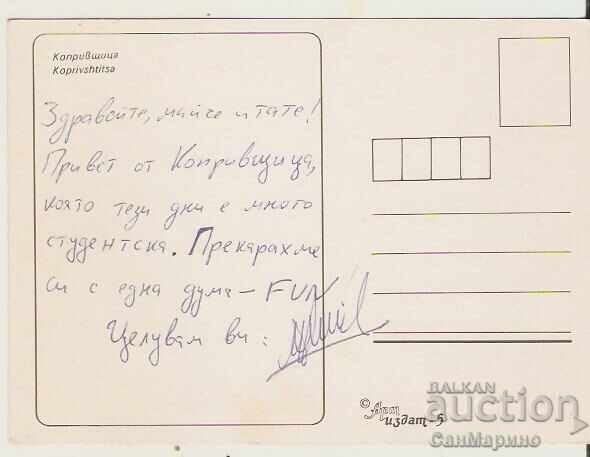 Копривщица
Koprivshtitsa
Здравейте, майче и тате!
Привет от Копривщица,
която тези дни е много
студентска. Прекарахме
си с една дума – FUN
Целувам ви:
© Арт
издат-5
BALKAN
auction
СанМарино